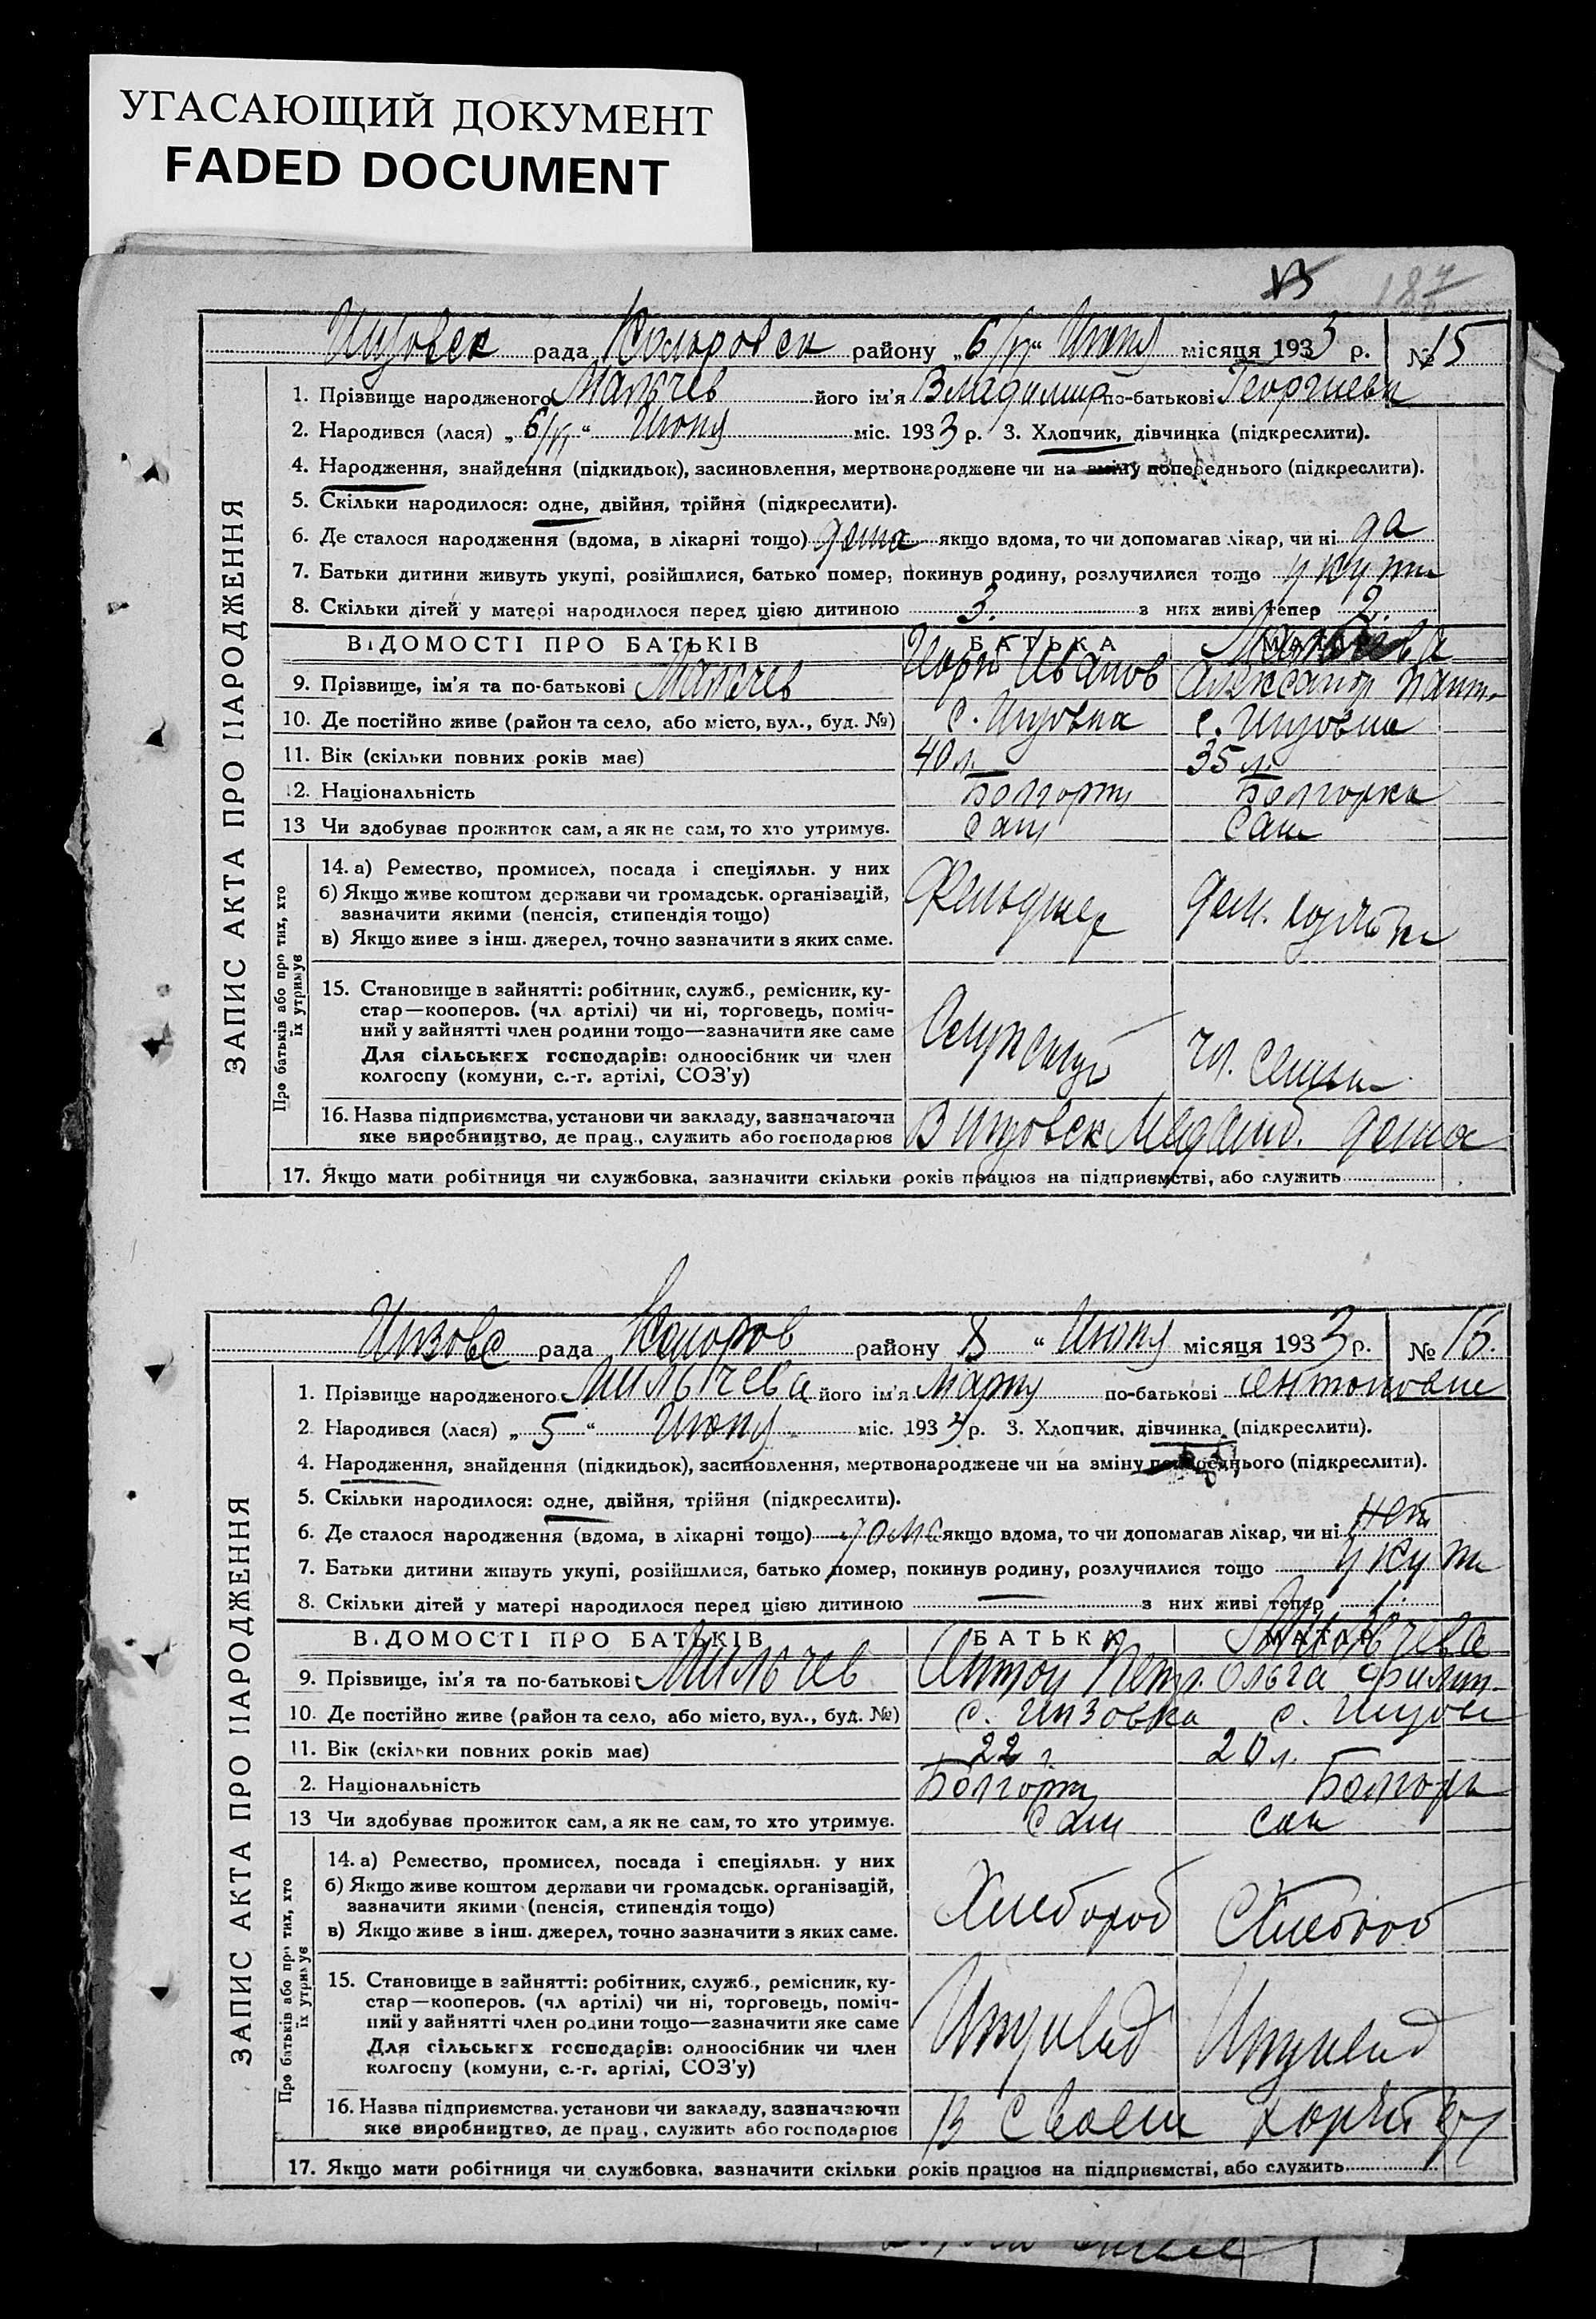 УГАСАЮЩИЙ ДОКУМЕНТ
FADED DOCUMENT
187
рада району „6/VI“ Июня місяця 1933 р. № 15
ЗАПИС АКТА ПРО НАРОДЖЕННЯ
1. Прізвище народженого його ім'я Владимир по-батькові Георгиеви
2. Народився (лася) „6/VI“ Июня міс. 1933 р. 3. Хлопчик, дівчинка (підкреслити).
4. Народження, знайдення (підкидьок), засиновлення, мертвонароджене чи на зміну попереднього (підкреслити).
5. Скільки народилося: одне, двійня, трійня (підкреслити).
6. Де сталося народження (вдома, в лікарні тощо) дома якщо вдома, то чи допомагав лікар, чи ні да
7. Батьки дитини живуть укупі, розійшлися, батько помер, покинув родину, розлучилися тощо укупи
8. Скільки дітей у матері народилося перед цією дитиною 3. з них живі тепер 2.
ВІДОМОСТІ ПРО БАТЬКІВ БАТЬКА
9. Прізвище, ім'я та по-батькові Иванов Александр
10. Де постійно живе (район та село, або місто, вул., буд. №) с. Инзовка с. Инзовка
11. Вік (скільки повних років має) 40 л. 35 л.
12. Національність Болгорин Болгорка
13 Чи здобуває прожиток сам, а як не сам, то хто утримує. Сам Сам
Про батьків або про тих, хто їх утримує
14. а) Ремество, промисел, посада і спеціяльн. у них
б) Якщо живе коштом держави чи громадськ. організацій,
зазначити якими (пенсія, стипендія тощо)
в) Якщо живе з інш. джерел, точно зазначити з яких саме.
Фельдшер дом.
15. Становище в зайнятті: робітник, служб., ремісник, ку-
стар—кооперов. (чл. артілі) чи ні, торговець, поміч-
ний у зайнятті член родини тощо—зазначити яке саме
Для сільських господарів: одноосібник чи член
колгоспу (комуни, с.-г. артілі, СОЗ'у)
чл. семьи
16. Назва підприємства, установи чи закладу, зазначаючи
яке виробництво, де прац., служить або господарює
В дома
17. Якщо мати робітниця чи службовка, зазначити скільки років працює на підприємстві, або служить
рада району 8 “ Июня місяця 1933 р. № 16.
ЗАПИС АКТА ПРО НАРОДЖЕННЯ
1. Прізвище народженого Мильчева його ім'я Мария по-батькові Антонови
2. Народився (лася) „5“ Июня міс. 1933 р. 3. Хлопчик, дівчинка (підкреслити).
4. Народження, знайдення (підкидьок), засиновлення, мертвонароджене чи на зміну попереднього (підкреслити).
5. Скільки народилося: одне, двійня, трійня (підкреслити).
6. Де сталося народження (вдома, в лікарні тощо) дома якщо вдома, то чи допомагав лікар, чи ні нет
7. Батьки дитини живуть укупі, розійшлися, батько помер, покинув родину, розлучилися тощо укупи
8. Скільки дітей у матері народилося перед цією дитиною — з них живі тепер
ВІДОМОСТІ ПРО БАТЬКІВ БАТЬКА Мильчева
9. Прізвище, ім'я та по-батькові Мильчев Антон Петр. Ольга Филип
10. Де постійно живе (район та село, або місто, вул., буд. №) с. Инзовка с. Инзовк
11. Вік (скільки повних років має) 22 г. 20 л.
2. Національність Болгорин Болгорк
13 Чи здобуває прожиток сам, а як не сам, то хто утримує. Сам сам
Про батьків або про тих, хто їх утримує
14. а) Ремество, промисел, посада і спеціяльн. у них
б) Якщо живе коштом держави чи громадськ. організацій,
зазначити якими (пенсія, стипендія тощо)
в) Якщо живе з інш. джерел, точно зазначити з яких саме.
Хлебороб Хлебороб
15. Становище в зайнятті: робітник, служб., ремісник, ку-
стар—кооперов. (чл. артілі) чи ні, торговець, поміч-
ний у зайнятті член родини тощо—зазначити яке саме
Для сільських господарів: одноосібник чи член
колгоспу (комуни, с.-г. артілі, СОЗ'у)
Индивид Индивид
16. Назва підприємства, установи чи закладу, зазначаючи
яке виробництво, де прац., служить або господарює
В своем
17. Якщо мати робітниця чи службовка, зазначити скільки років працює на підприємстві, або служить